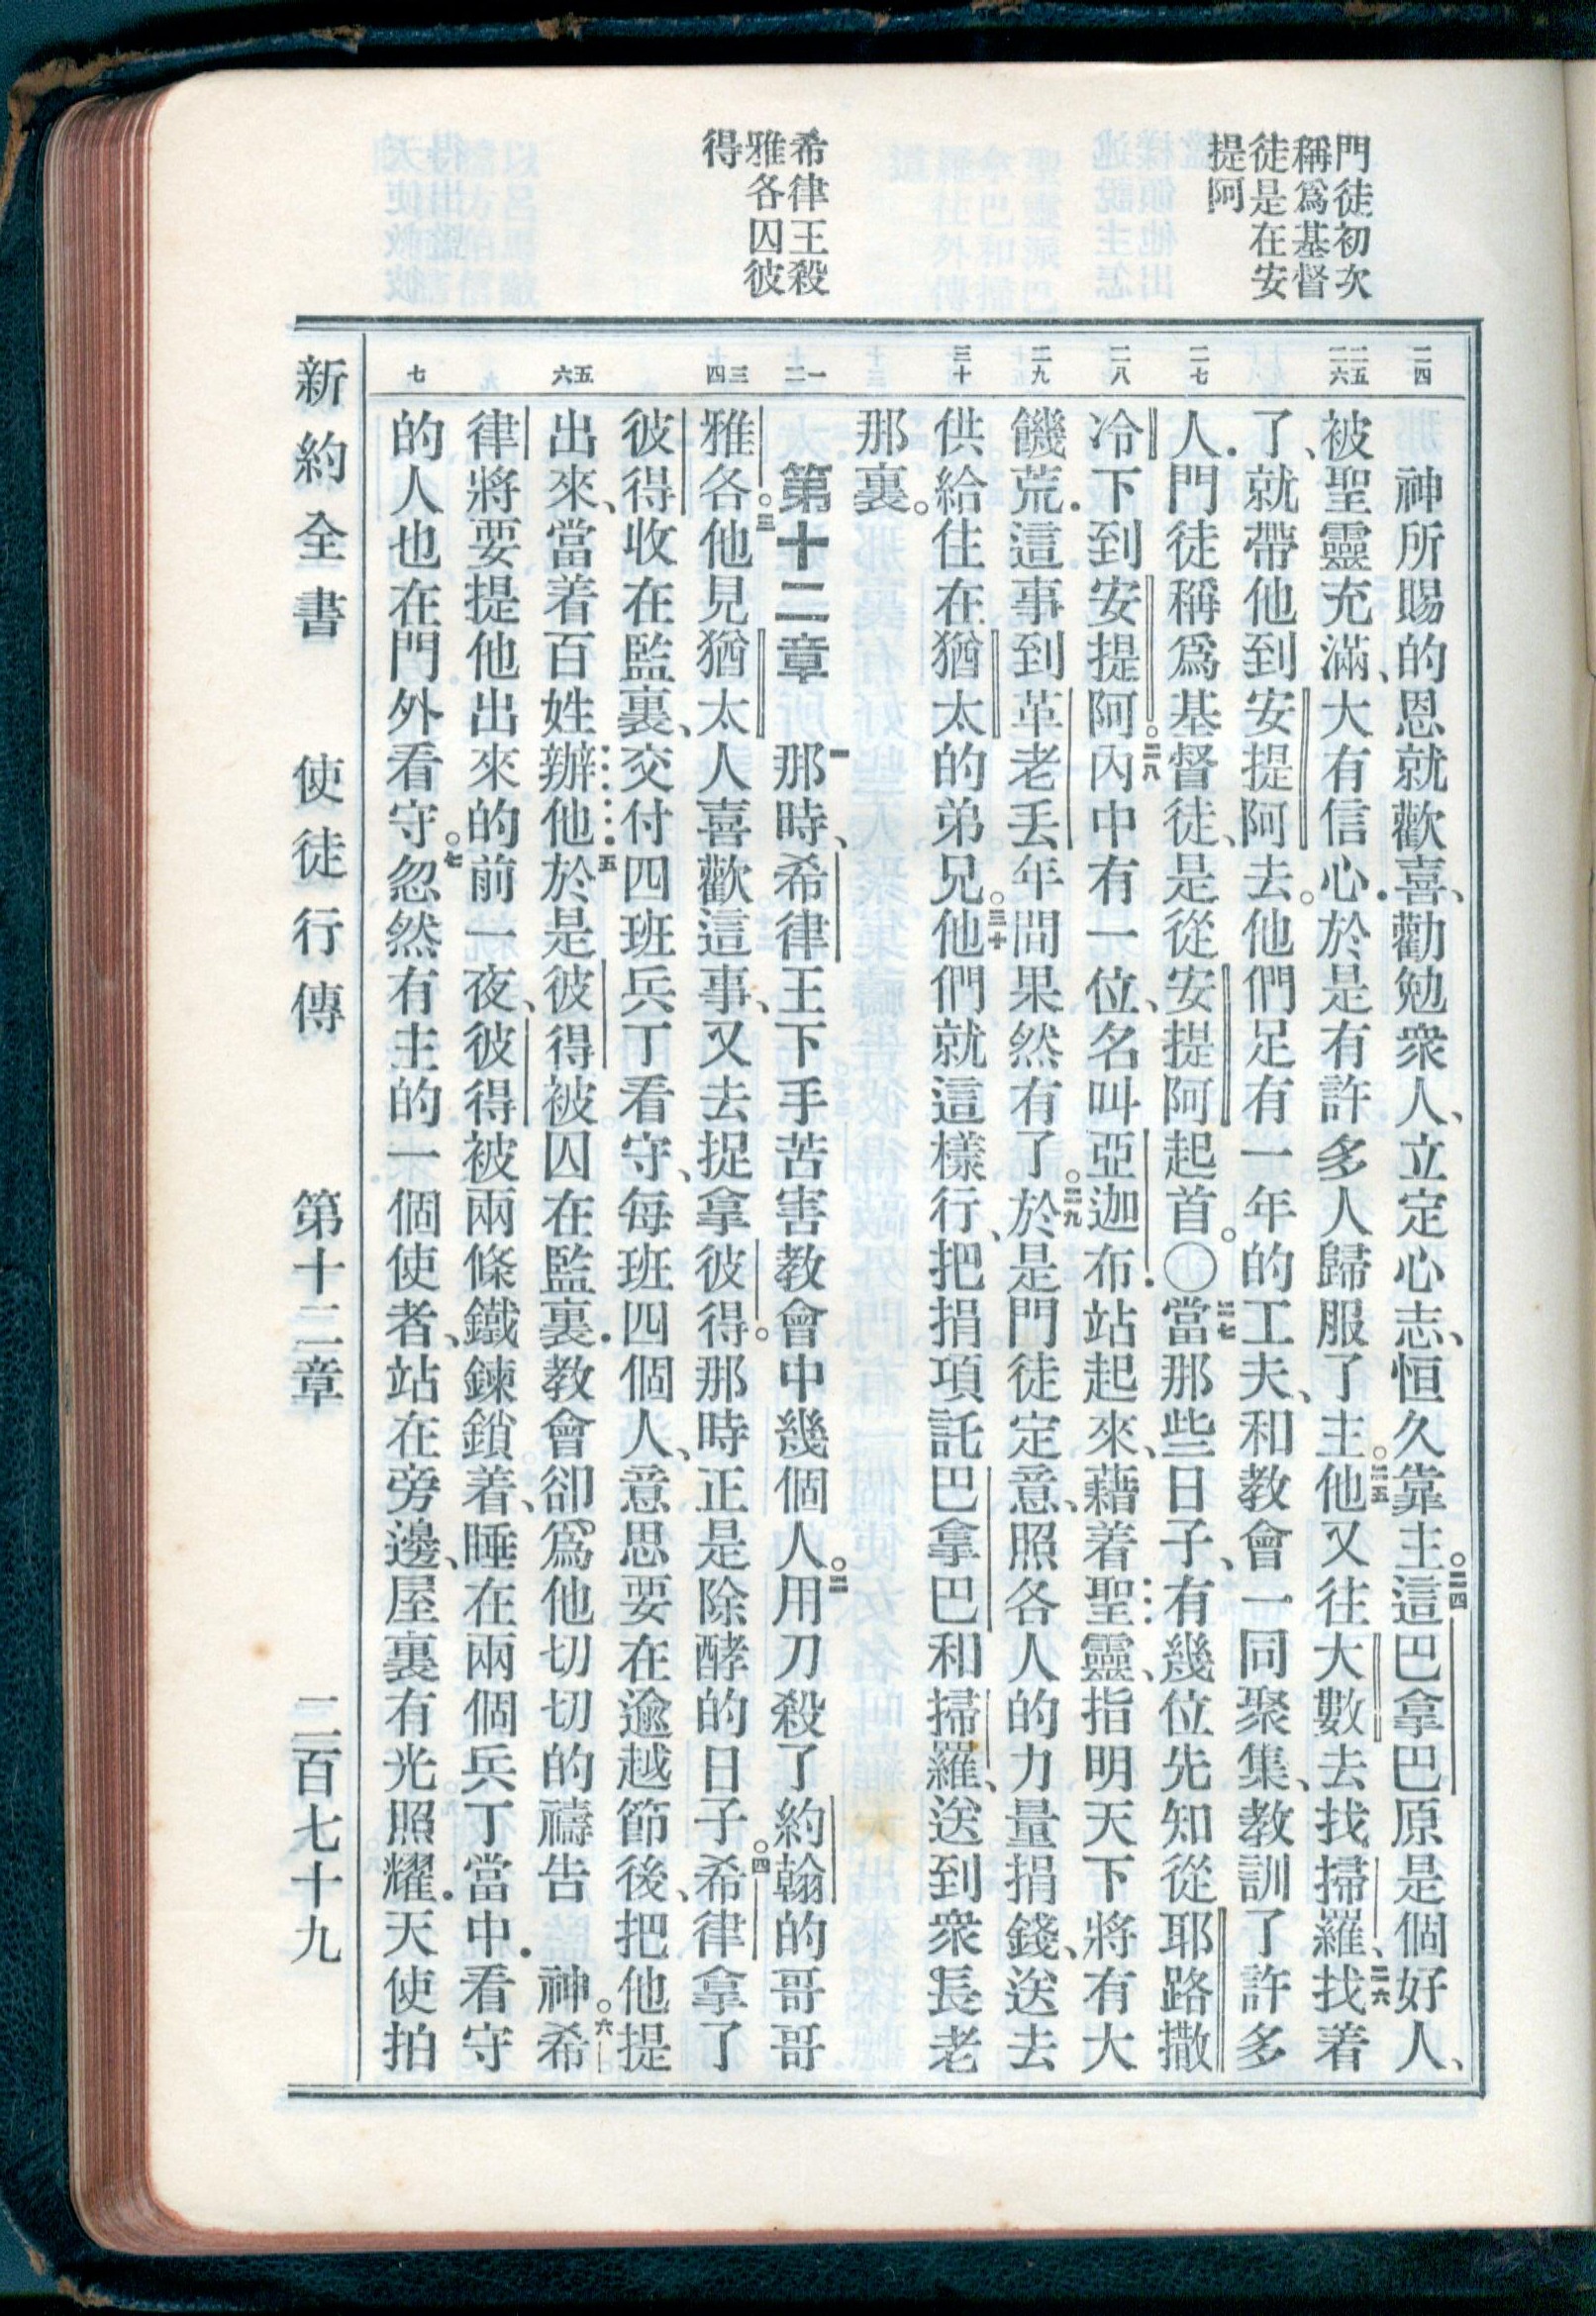 門徒初次
稱爲基督
徒是在安
提阿
希律王殺
雅各囚彼
得
二四
二五
二六
二七
二八
二九
三十
一
二
三
四
五
六
七
神所賜的恩就歡喜、勸勉衆人、立定心志、恒久靠主。二四這巴拿巴原是個好人、
被聖靈充滿、大有信心.於是有許多人歸服了主。二五他又往大數去找掃羅、二六找着
了、就帶他到安提阿去。他們足有一年的工夫、和教會一同聚集、教訓了許多
人.門徒稱爲基督徒、是從安提阿起首。〇二七當那些日子、有幾位先知從耶路撒
冷下到安提阿。二八內中有一位、名叫亞迦布.站起來、藉着聖靈、指明天下將有大
饑荒.這事到革老丟年間果然有了。二九於是門徒定意、照各人的力量捐錢、送去
供給住在猶太的弟兄。三十他們就這樣行、把捐項託巴拿巴和掃羅、送到衆長老
那裏。
第十二章 一那時、希律王下手苦害教會中幾個人。二用刀殺了約翰的哥哥
雅各。三他見猶太人喜歡這事、又去捉拿彼得。那時正是除酵的日子。四希律拿了
彼得收在監裏、交付四班兵丁看守、每班四個人、意思要在逾越節後、把他提
出來、當着百姓辦他五於是彼得被囚在監裏.教會卻爲他切切的禱告 神。六希
律將要提他出來的前一夜、彼得被兩條鐵鍊鎖着、睡在兩個兵丁當中.看守
的人也在門外看守。七忽然有主的一個使者、站在旁邊、屋裏有光照耀.天使拍
新約全書 使徒行傳 第十二章 二百七十九